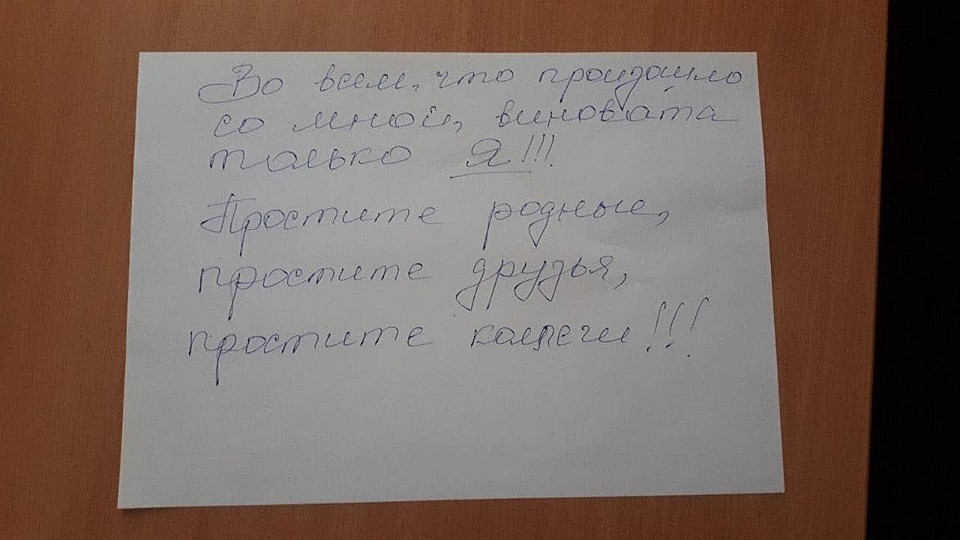 Во всем, что произошло
со мной, виновата
только Я!!!
Простите родные,
простите друзья,
простите коллеги!!!